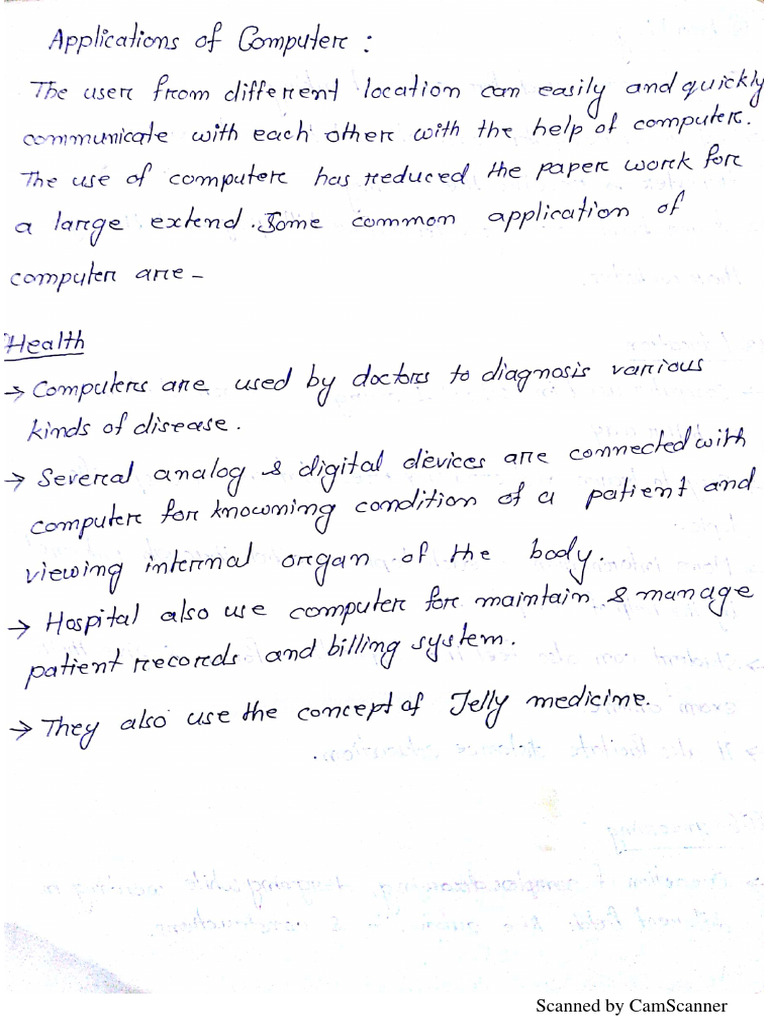 Applications of Computer :
The user from different location can easily and quickly
communicate with each other with the help of computer.
The use of computer has reduced the paper work for
a large extend. Some common application of
computer are -
Health
→ Computers are used by doctors to diagnosis various
kinds of disease.
→ Several analog & digital devices are connected with
computer for knowning condition of a patient and
viewing internal organ of the body.
→ Hospital also use computer for maintain & manage
patient records and billing system.
→ They also use the concept of Jelly medicine.
Scanned by CamScanner